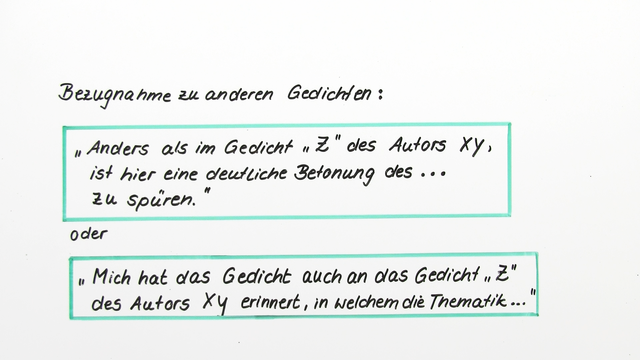 Bezugnahme zu anderen Gedichten:
„Anders als im Gedicht „Z" des Autors Xy,
ist hier eine deutliche Betonung des ...
zu spüren."
oder
„Mich hat das Gedicht auch an das Gedicht „Z"
des Autors Xy erinnert, in welchem die Thematik..."